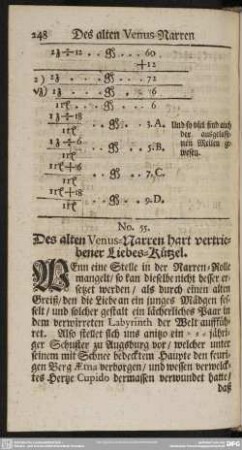 248 Des alten Venus-Narren
60
+12
72
6
6
3. A.
5. B.
7. C.
9. D.
Und so viel sind auch
der ausgelasse-
nen Meilen ge-
wesen.
No. 55.
Des alten Venus-Narren hart vertrie-
bener Liebes-Kützel.
WEnn eine Stelle in der Narren-Rolle
mangelt/ so kan dieselbe nicht besser er-
setzet werden/ als durch einen alten
Greiß/ den die Liebe an ein junges Mädgen fes-
selt/ und solcher gestalt ein lächerliches Paar in
dem verwirreten Labyrinth der Welt aufffüh-
ret. Also stellet sich uns anitzo ein - - - jähri-
ger Schuster zu Augsburg vor/ welcher unter
seinem mit Schnee bedecktem Haupte den feuri-
gen Berg Ætna verborgen/ und wessen verwelck-
tes Hertze Cupido dermassen verwundet hatte/
daß